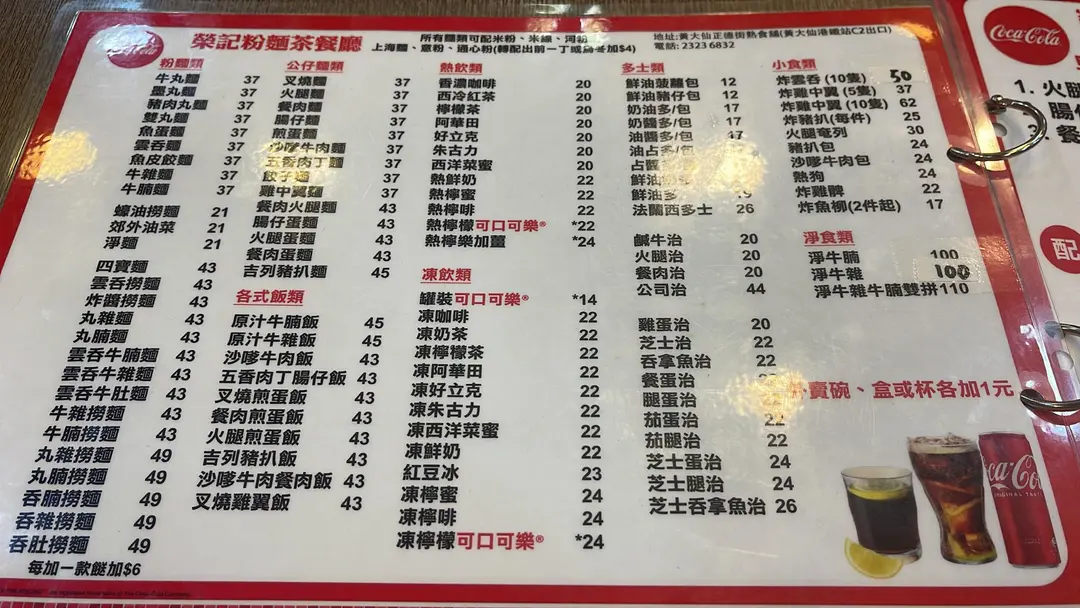 榮記粉麵茶餐廳
所有麵類可配米粉、米線、河粉
上海麵、意粉、通心粉(轉配出前一丁或烏冬加$4)
地址:黃大仙正德街熟食舖(黃大仙港鐵站C2出口)
電話: 2323 6832
粉麵類
牛丸麵 37
墨丸麵 37
豬肉丸麵 37
雙丸麵 37
魚蛋麵 37
雲吞麵 37
魚皮餃麵 37
牛雜麵 37
牛腩麵 37
蠔油撈麵 21
郊外油菜 21
淨麵 21
四寶麵 43
雲吞撈麵 43
炸醬撈麵 43
丸雜麵 43
丸腩麵 43
雲吞牛腩麵 43
雲吞牛雜麵 43
雲吞牛肚麵 43
牛雜撈麵 43
牛腩撈麵 43
丸雜撈麵 49
丸腩撈麵 49
吞腩撈麵 49
吞雜撈麵 49
吞肚撈麵 49
每加一款餸加$6
公仔麵類
叉燒麵 37
火腿麵 37
餐肉麵 37
腸仔麵 37
煎蛋麵 37
沙嗲牛肉麵 37
五香肉丁麵 37
餃子麵 37
雞中翼麵 37
餐肉火腿麵 43
腸仔蛋麵 43
火腿蛋麵 43
餐肉蛋麵 43
吉列豬扒麵 45
各式飯類
原汁牛腩飯 45
原汁牛雜飯 45
沙嗲牛肉飯 43
五香肉丁腸仔飯 43
叉燒煎蛋飯 43
餐肉煎蛋飯 43
火腿煎蛋飯 43
吉列豬扒飯 43
沙嗲牛肉餐肉飯 43
叉燒雞翼飯 43
熱飲類
香濃咖啡 20
西冷紅茶 20
檸檬茶 20
阿華田 20
好立克 20
朱古力 20
西洋菜蜜 20
熱鮮奶 22
熱檸蜜 22
熱檸啡 22
熱檸檬可口可樂® *22
熱檸樂加薑 *24
凍飲類
罐裝可口可樂® *14
凍咖啡 22
凍奶茶 22
凍檸檬茶 22
凍阿華田 22
凍好立克 22
凍朱古力 22
凍西洋菜蜜 22
凍鮮奶 22
紅豆冰 23
凍檸蜜 24
凍檸啡 24
凍檸檬可口可樂® *24
多士類
鮮油菠蘿包 12
鮮油豬仔包 12
奶油多/包 17
奶醬多/包 17
油醬多/包 17
油占多/包
占醬
鮮油
鮮油多
法蘭西多士 26
鹹牛治 20
火腿治 20
餐肉治 20
公司治 44
雞蛋治 20
芝士治 22
吞拿魚治 22
餐蛋治
腿蛋治 22
茄蛋治 22
茄腿治 22
芝士蛋治 24
芝士腿治 24
芝士吞拿魚治 26
小食類
炸雲吞 (10隻) 50
炸雞中翼 (5隻) 37
炸雞中翼 (10隻) 62
炸豬扒(每件) 25
火腿奄列 30
豬扒包 24
沙嗲牛肉包 24
熱狗 24
炸雞髀 22
炸魚柳(2件起) 17
淨食類
淨牛腩 100
淨牛雜 100
淨牛雜牛腩雙拼 110
賣碗、盒或杯各加1元
Coca-Cola
1. 火腿
腸仔
餐
配